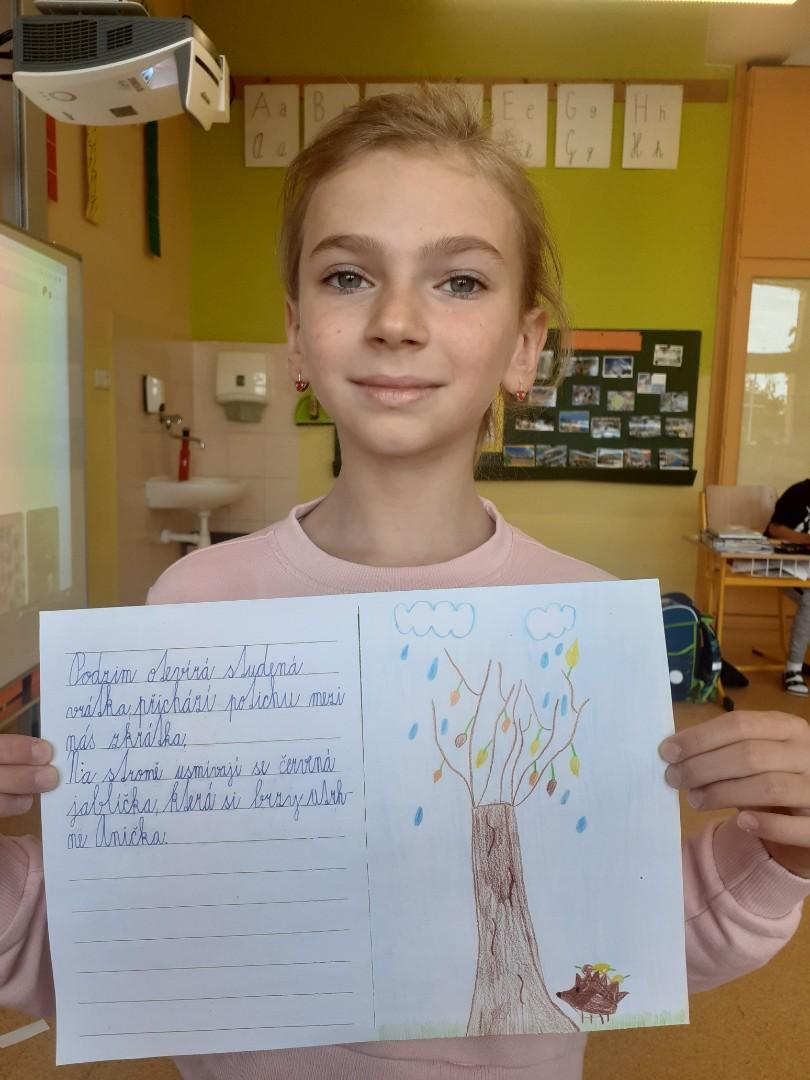 A a
A a
B
E e
G g
G g
H h
H h
Podzim otevírá studená
vrátka přichází potichu mezi
nás zkrátka.
Na stromě usmívají se červená
jablíčka, která si brzy utrh-
ne Anička.